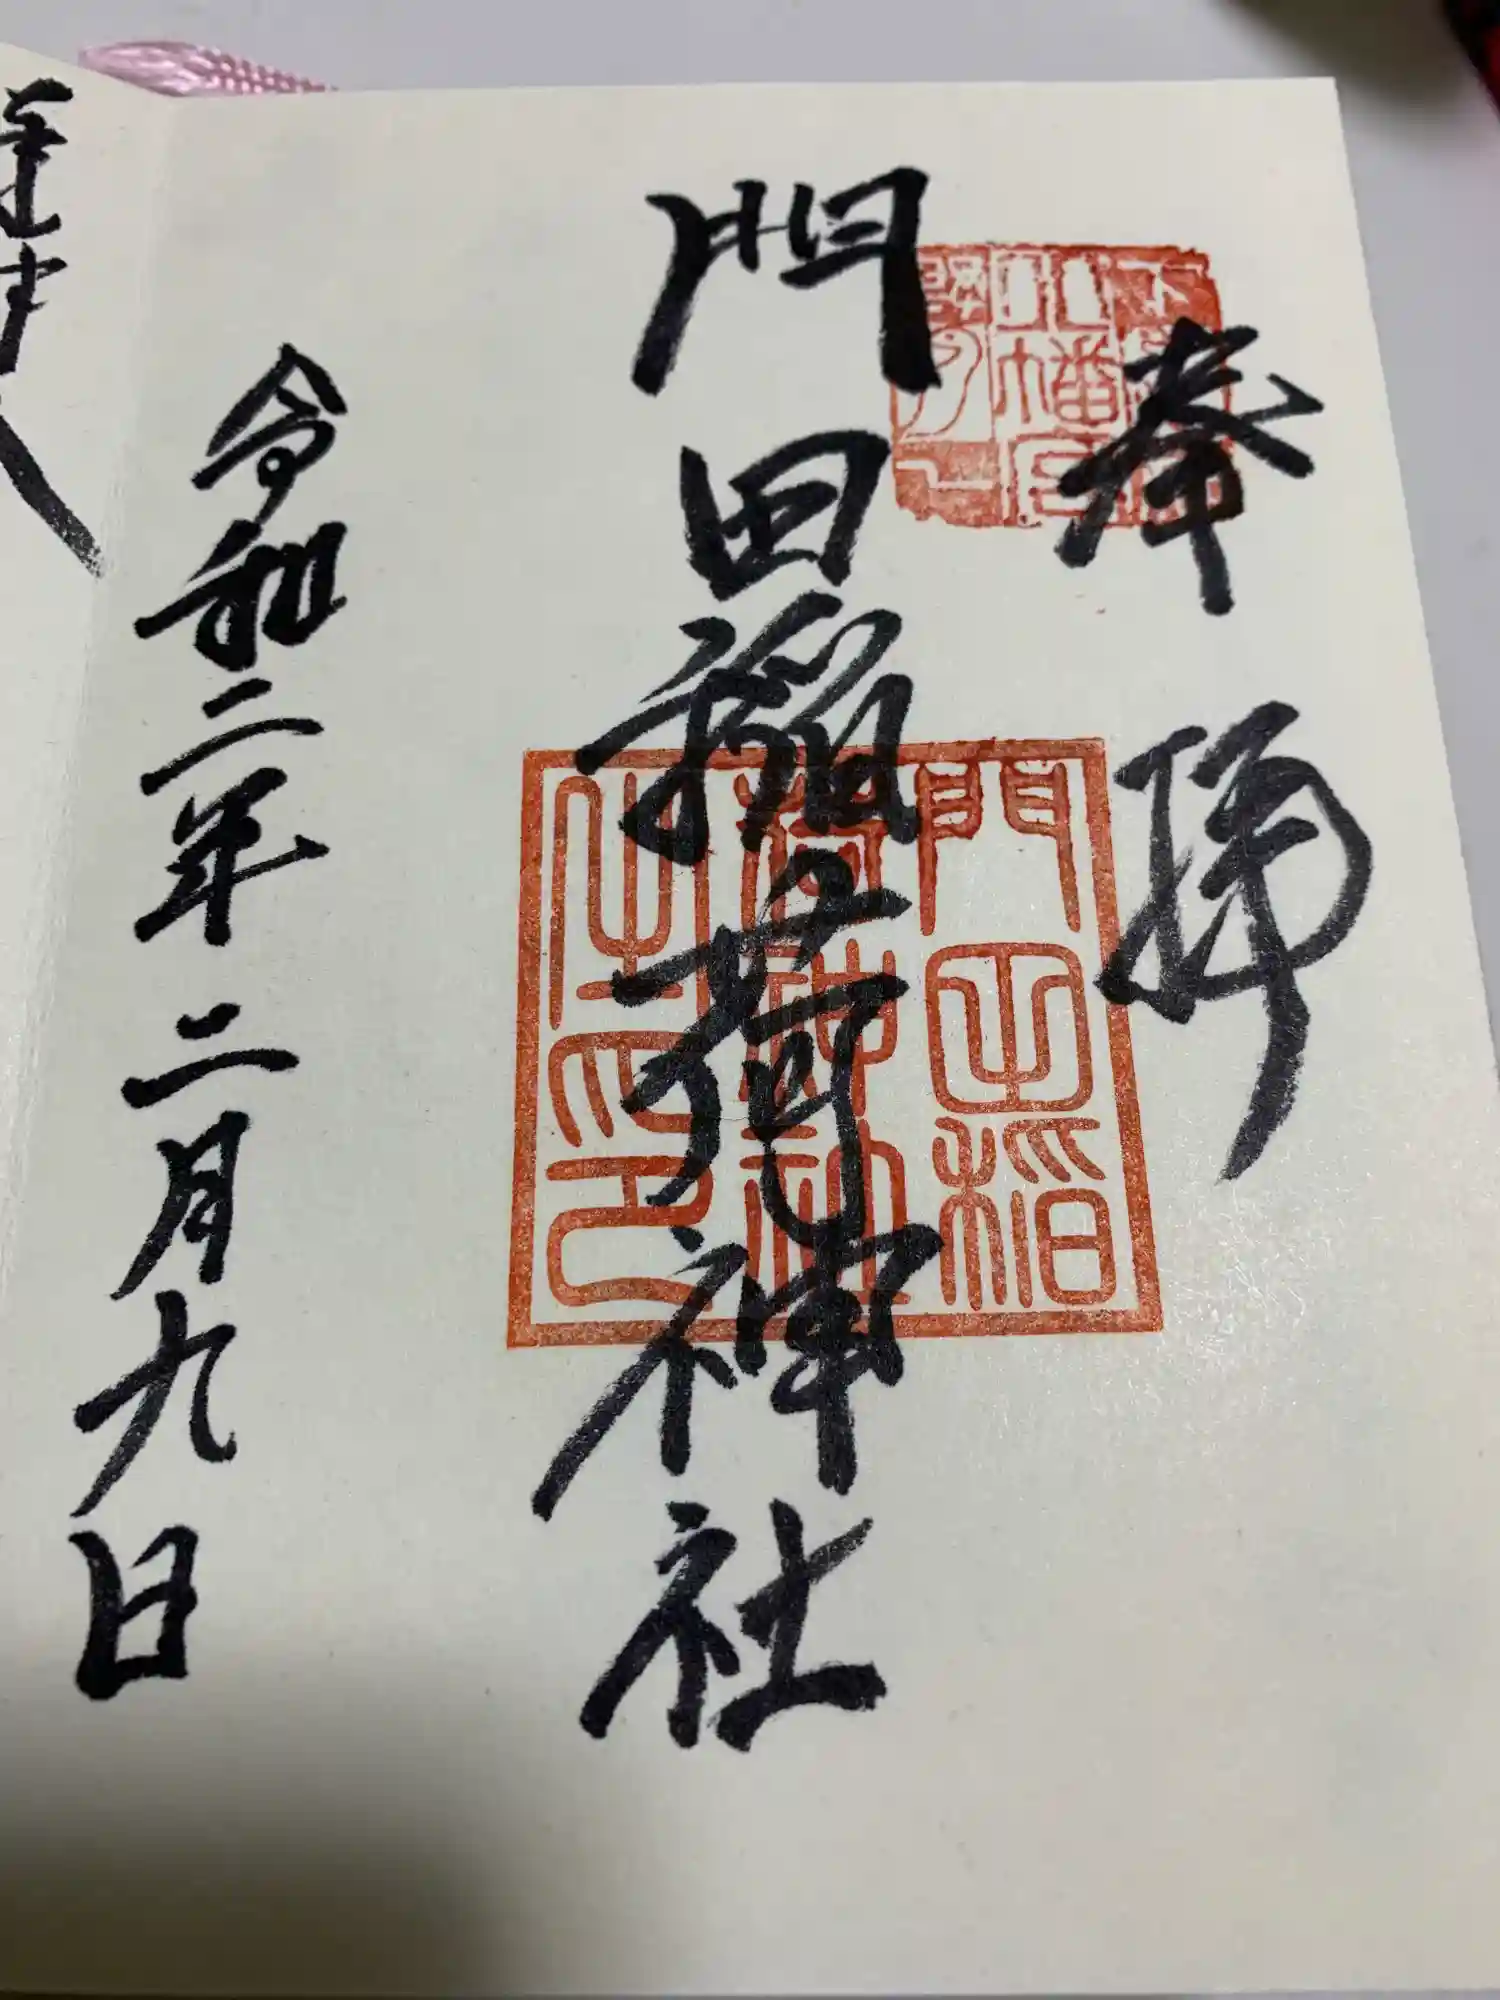 奉拝
門田稲荷神社
令和二年二月九日
八幡宮
門田稲
荷神社
之印